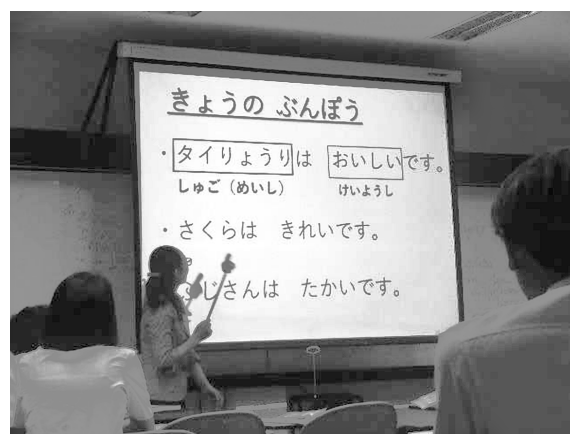 きょうの ぶんぽう
・タイりょうりは おいしいです。
しゅご（めいし） けいようし
・さくらは きれいです。
じさんは たかいです。